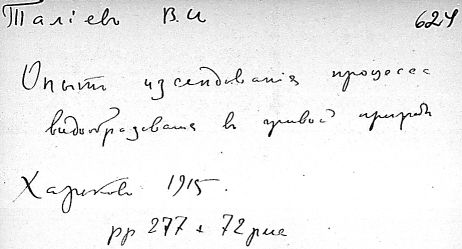 Таліев В.И 624
Опыт изследованія процесса
видообразованія в живой природѣ
Харьков 1915.
pp 277 + 72 рис